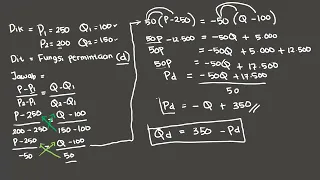 Dik = P₁ = 250 Q₁ = 100
P₂ = 200 Q₂ = 150
Dit = Fungsi permintaan (d)
Jawab =
P-P₁ = Q-Q₁
P₂-P₁ Q₂-Q₁
P-250 = Q-100
200-250 150-100
P-250 = Q-100
-50 50
50 (P-250) = -50 (Q-100)
50P - 12.500 = -50Q + 5.000
50P = -50Q + 5.000 + 12.500
50P = -50Q + 17.500
Pd = -50Q + 17.500
50
Pd = -Q + 350 //
Qd = 350 - Pd